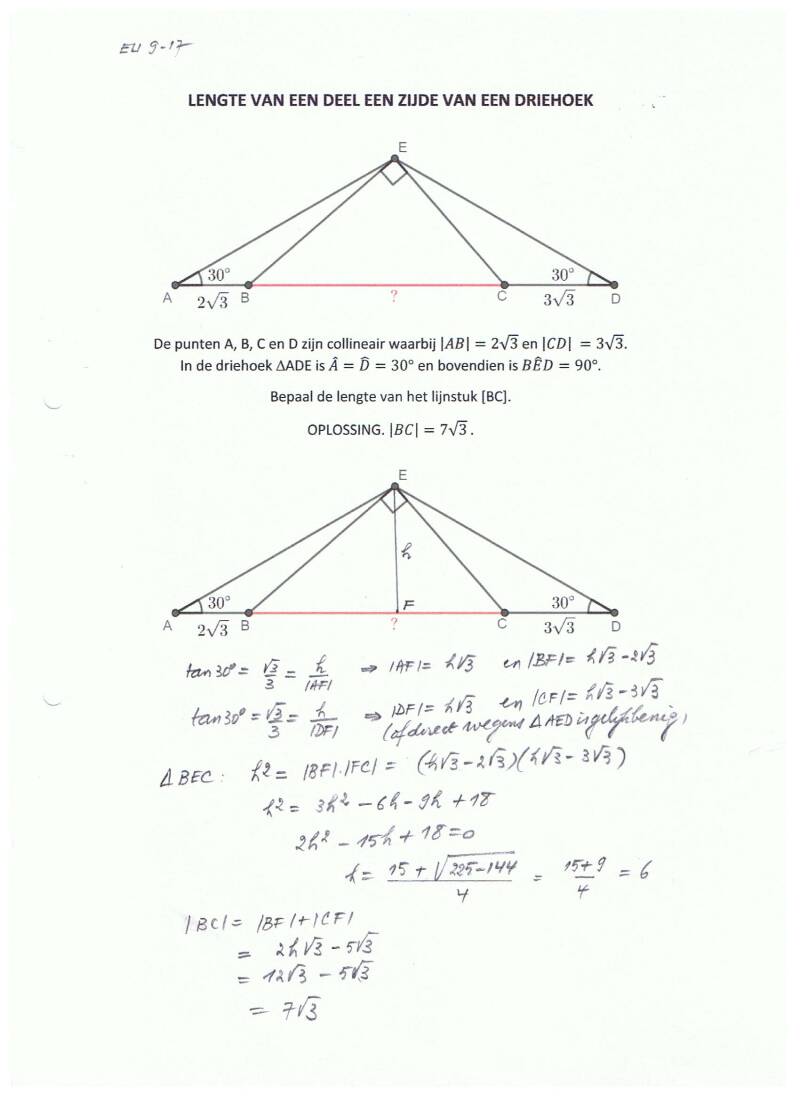 EU 9-17
LENGTE VAN EEN DEEL EEN ZIJDE VAN EEN DRIEHOEK
E
30° 30°
A 2√3 B ? C 3√3 D
De punten A, B, C en D zijn collineair waarbij |AB| = 2√3 en |CD| = 3√3.
In de driehoek ΔADE is Â = D̂ = 30° en bovendien is BÊD = 90°.
Bepaal de lengte van het lijnstuk [BC].
OPLOSSING. |BC| = 7√3 .
E
h
30° F 30°
A 2√3 B ? C 3√3 D
tan 30° = √3/3 = h/|AF| ⇒ |AF| = h√3 en |BF| = h√3 - 2√3
tan 30° = √3/3 = h/|DF| ⇒ |DF| = h√3 en |CF| = h√3 - 3√3
(of direct wegens ΔAED is gelijkbenig)
ΔBEC : h² = |BF|.|FC| = (h√3 - 2√3)(h√3 - 3√3)
h² = 3h² - 6h - 9h + 18
2h² - 15h + 18 = 0
h = (15 + √(225-144))/4 = (15+9)/4 = 6
|BC| = |BF| + |CF|
= 2h√3 - 5√3
= 12√3 - 5√3
= 7√3